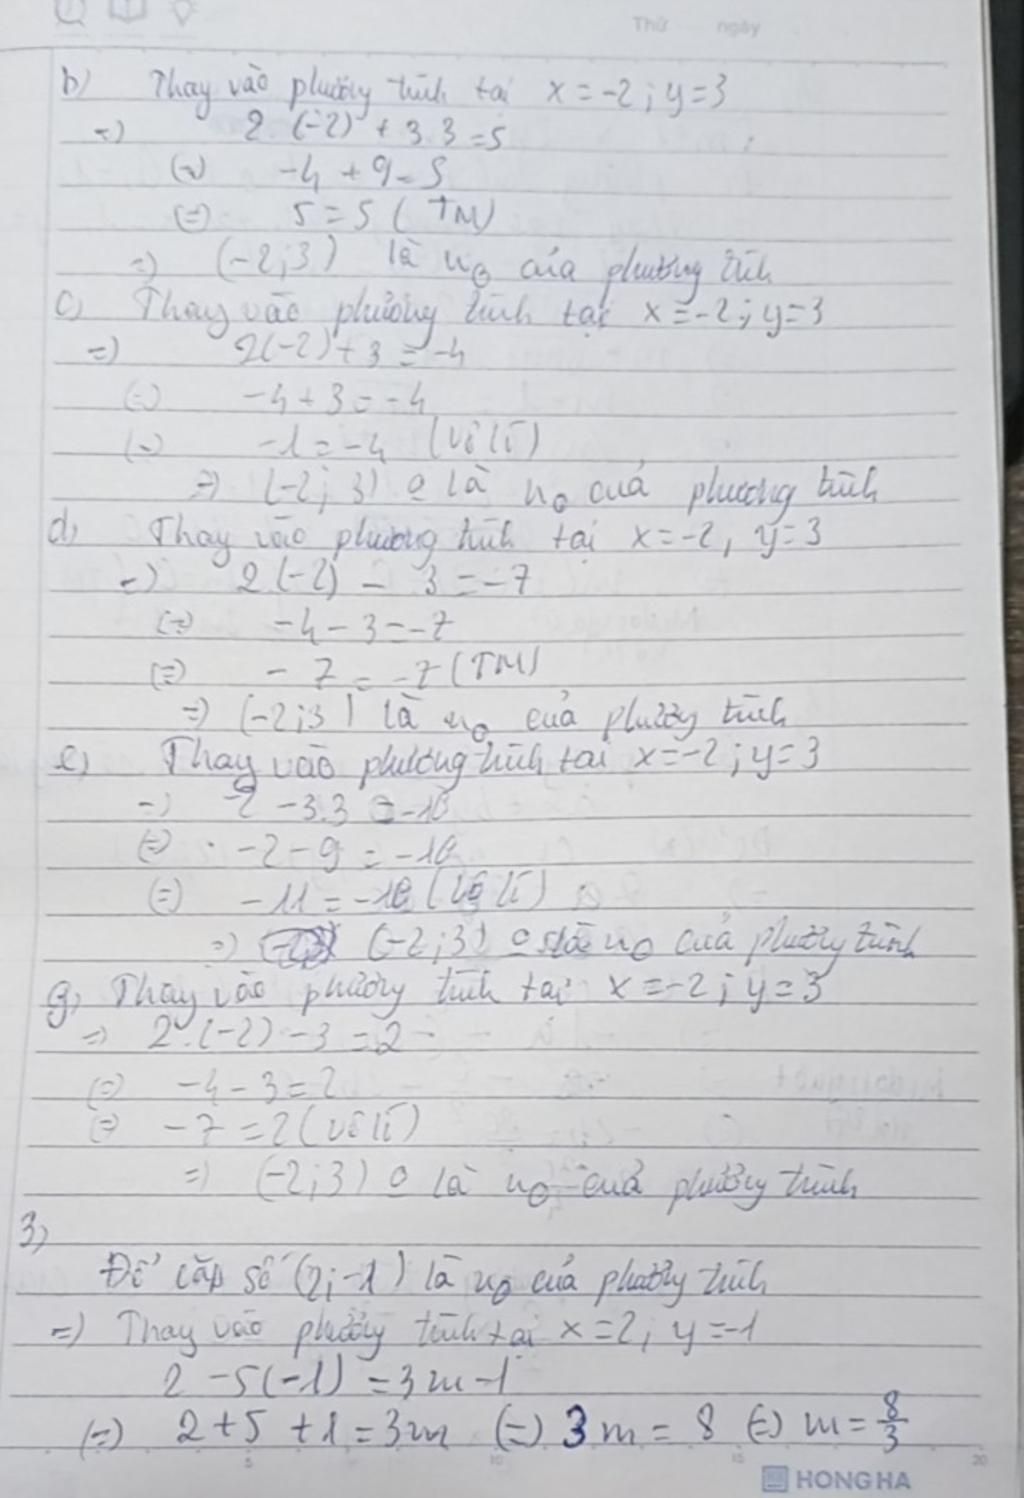 Thứ ngày
b) Thay vào phương trình tại x = -2 ; y = 3
=) 2.(-2) + 3.3 = 5
(=) -4 + 9 = 5
(=) 5 = 5 ( TM)
=) (-2;3) là no của phương trình
c) Thay vào phương trình tại x = -2 ; y = 3
=) 2(-2) + 3 = -4
(=) -4 + 3 = -4
(=) -1 = -4 (Vô lí)
=) (-2; 3) o là no của phương trình
d) Thay vào phương trình tại x = -2, y = 3
=) 2.(-2) - 3 = -7
(=) -4 - 3 = -7
(=) - 7 = -7 (TM)
=) (-2;3) là no của phương trình
e) Thay vào phương trình tại x = -2 ; y = 3
=) -2 - 3.3 = -10
(=) -2 - 9 = -10
(=) -11 = -10 (Vô lí)
=) (-2;3) o là no của phương trình
g) Thay vào phương trình tại x = -2 ; y = 3
=) 2.(-2) - 3 = 2
(=) -4 - 3 = 2
(=) -7 = 2 (Vô lí)
=) (-2;3) o là no của phương trình
3)
Để cặp số (2;-1) là no của phương trình
=) Thay vào phương trình tại x = 2; y = -1
2 - 5(-1) = 3m - 1
(=) 2 + 5 + 1 = 3m (=) 3m = 8 (=) m = 8/3
5 10 15 20
HONG HA